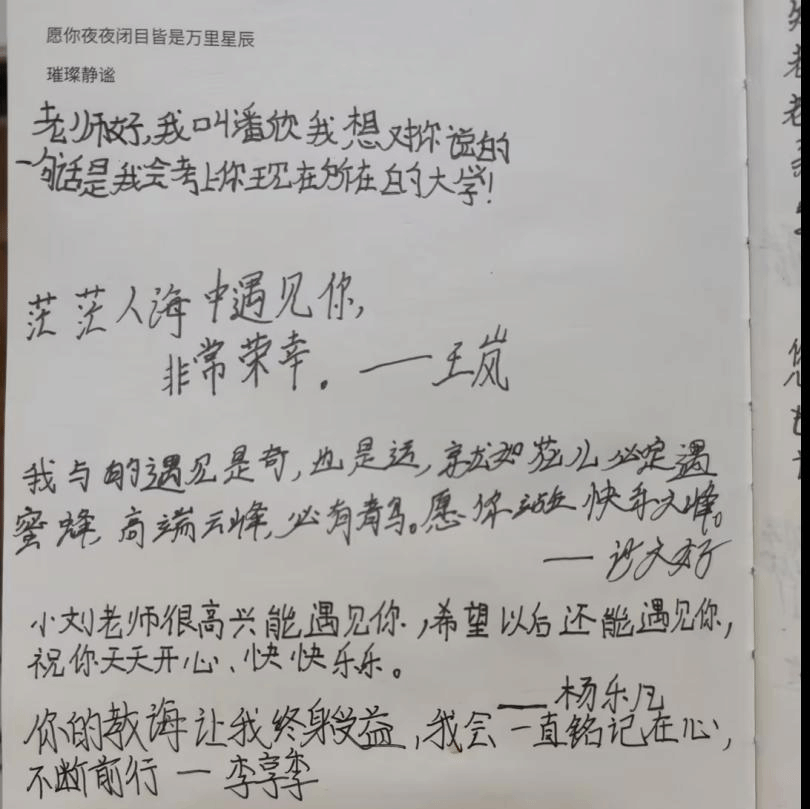 愿你夜夜闭目皆是万里星辰
璀璨静谧
老师好,我叫潘欣我想对你说的
一句话是我会考上你现在所在的大学!
茫茫人海中遇见你,
非常荣幸。——王岚
我与的遇见是奇,也是运,就如花儿必定遇
蜜蜂,高端云峰,必有青鸟。愿你站在快乐之峰。
小刘老师很高兴能遇见你,希望以后还能遇见你,
祝你天天开心、快快乐乐。
——杨乐凡
你的教诲让我终身受益,我会一直铭记在心,
不断前行 — 李享李